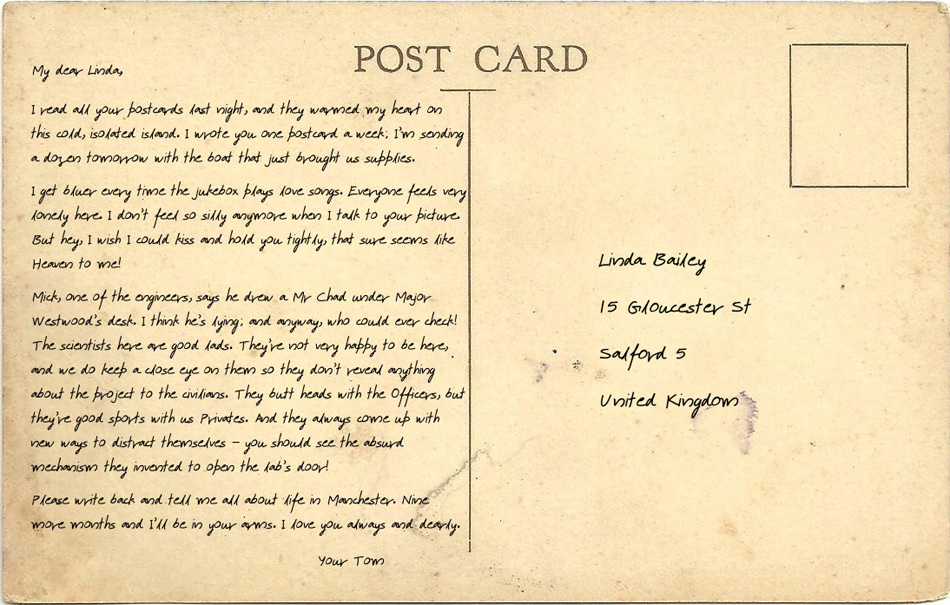 POST CARD
My dear Linda,
I read all your postcards last night, and they warmed my heart on
this cold, isolated island. I wrote you one postcard a week; I'm sending
a dozen tomorrow with the boat that just brought us supplies.
I get bluer every time the jukebox plays love songs. Everyone feels very
lonely here. I don't feel so silly anymore when I talk to your picture.
But hey, I wish I could kiss and hold you tightly, that sure seems like
Heaven to me!
Mick, one of the engineers, says he drew a Mr Chad under Major
Westwood's desk. I think he's lying; and anyway, who could ever check!
The scientists here are good lads. They're not very happy to be here,
and we do keep a close eye on them so they don't reveal anything
about the project to the civilians. They butt heads with the Officers, but
they're good sports with us Privates. And they always come up with
new ways to distract themselves – you should see the absurd
mechanism they invented to open the lab's door!
Please write back and tell me all about life in Manchester. Nine
more months and I'll be in your arms. I love you always and dearly.
Your Tom
Linda Bailey
15 Gloucester St
Salford 5
United Kingdom